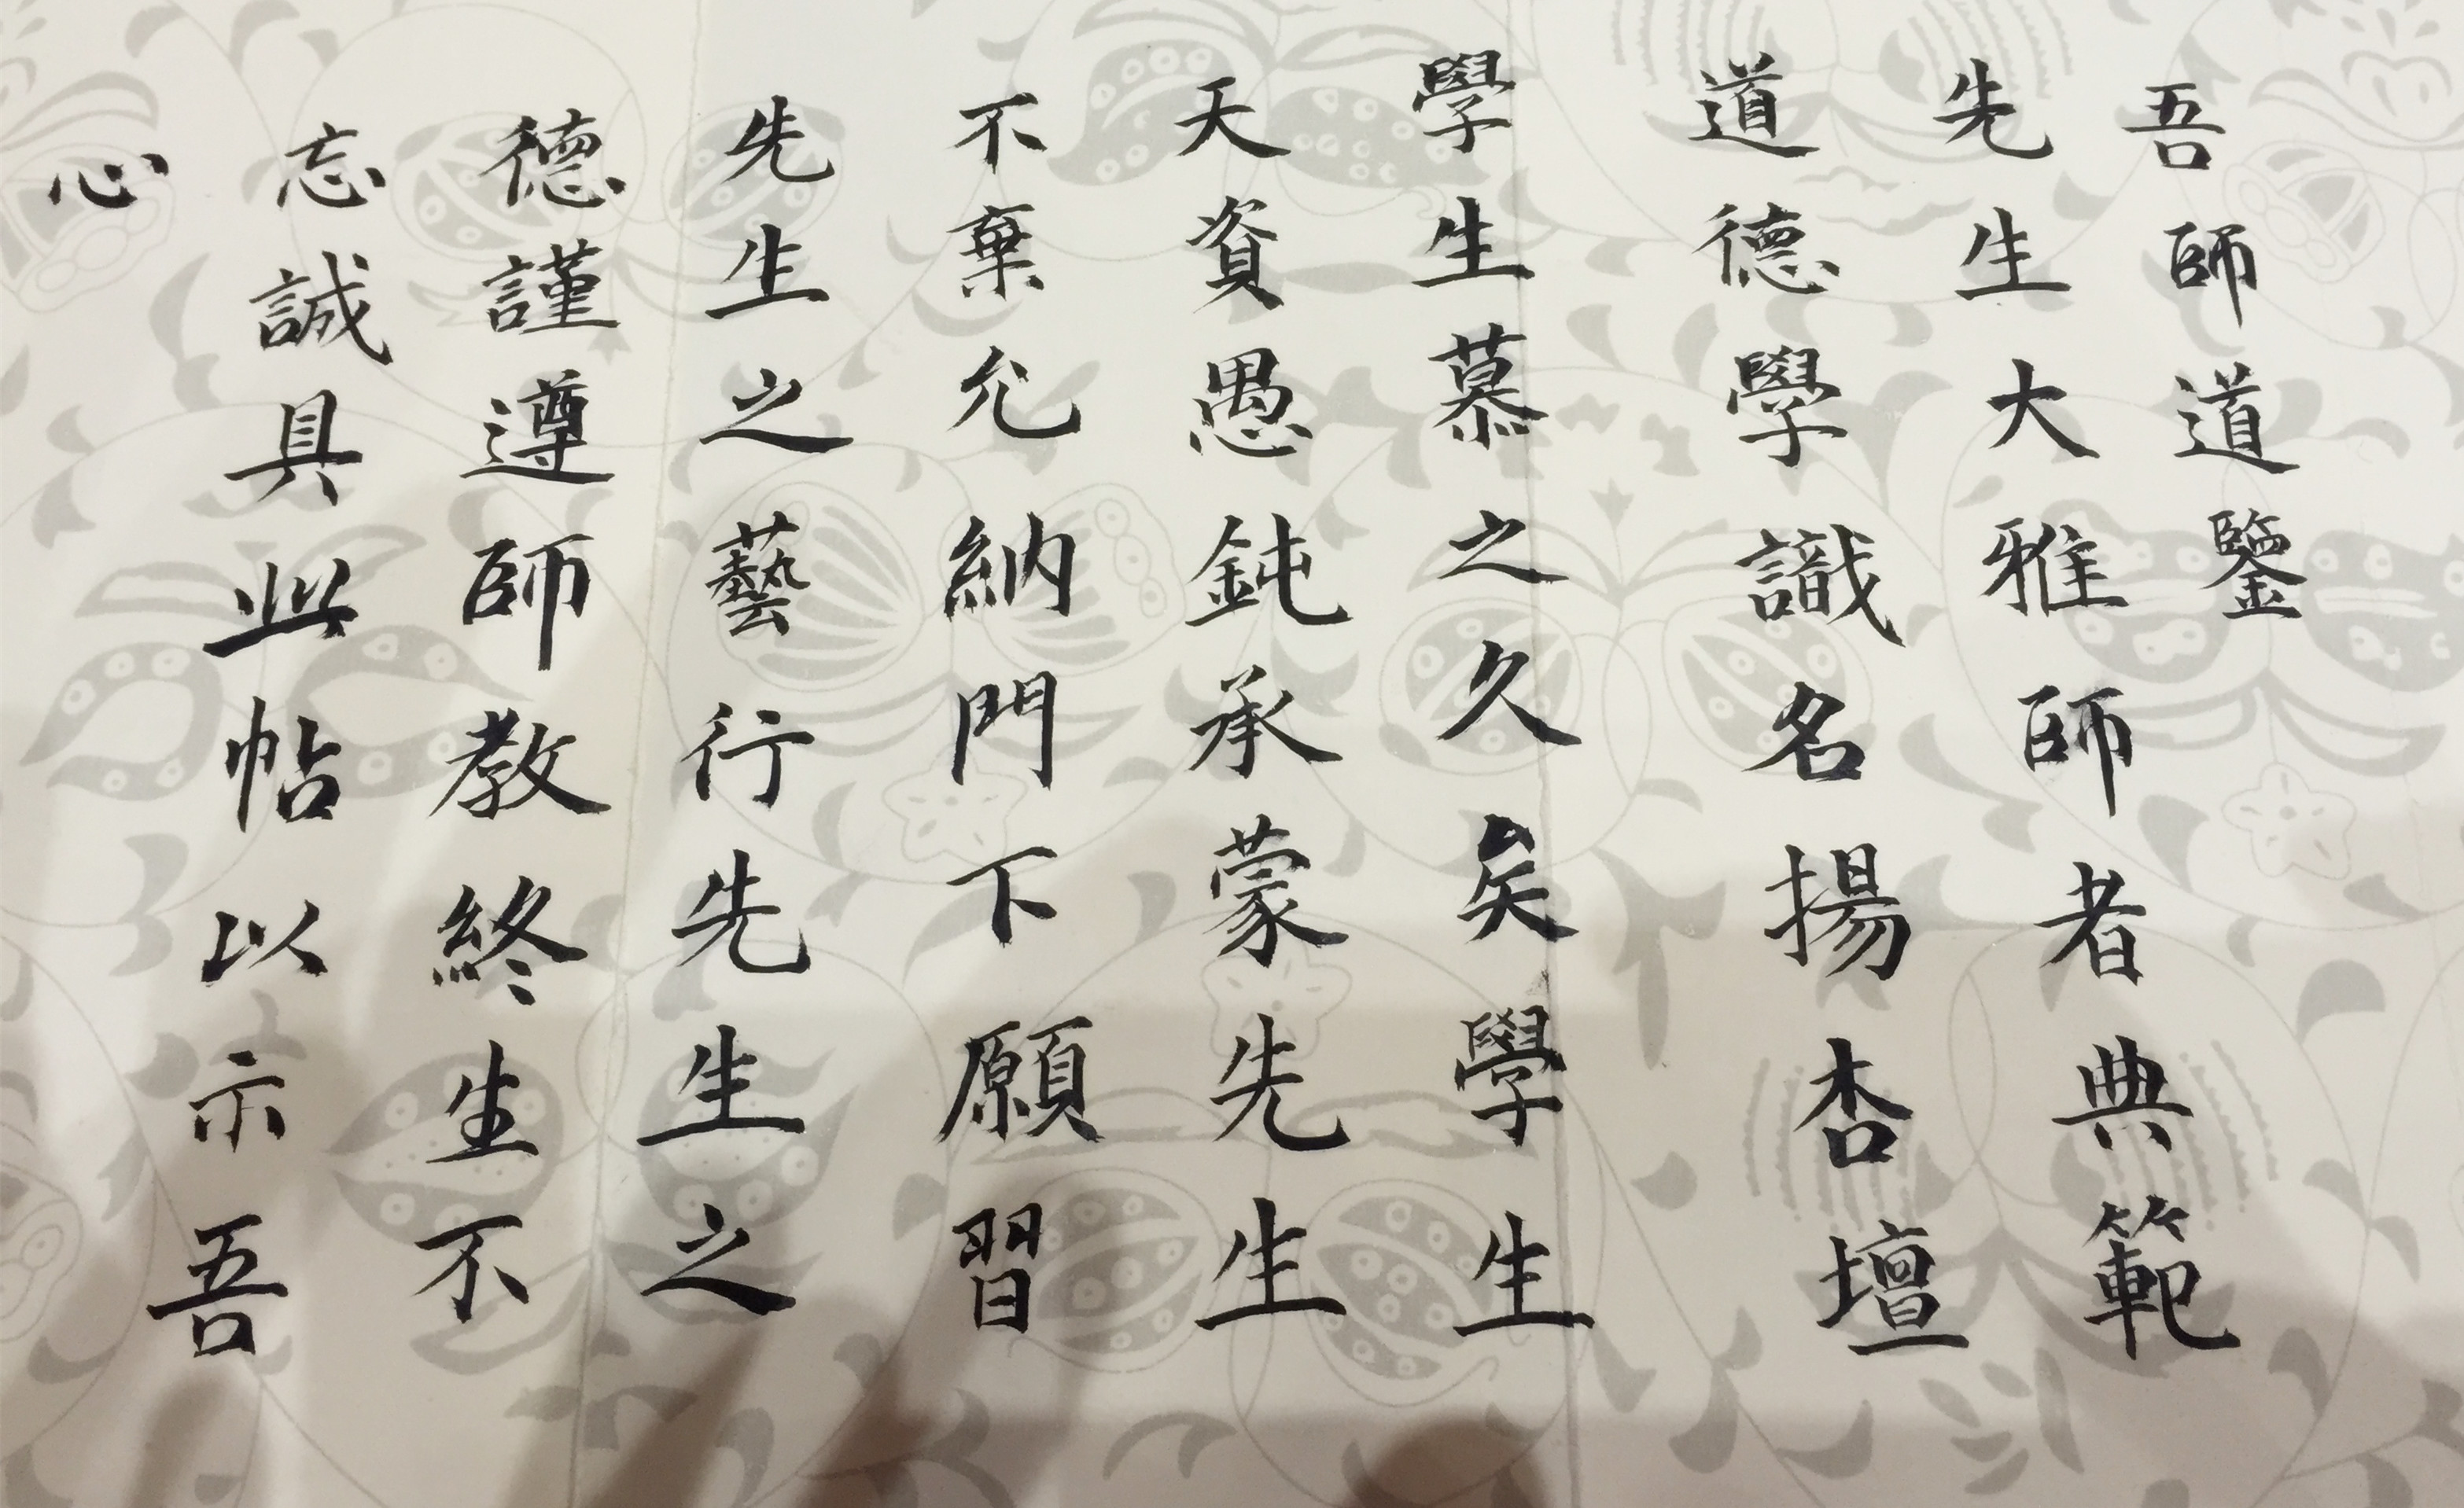 吾師道鑒
先生大雅師者典範
道德學識名揚杏壇
學生慕之久矣學生
天資愚鈍承蒙先生
不棄允納門下願習
先生之藝行先生之
德謹遵師教終生不
忘誠具此帖以示吾
心